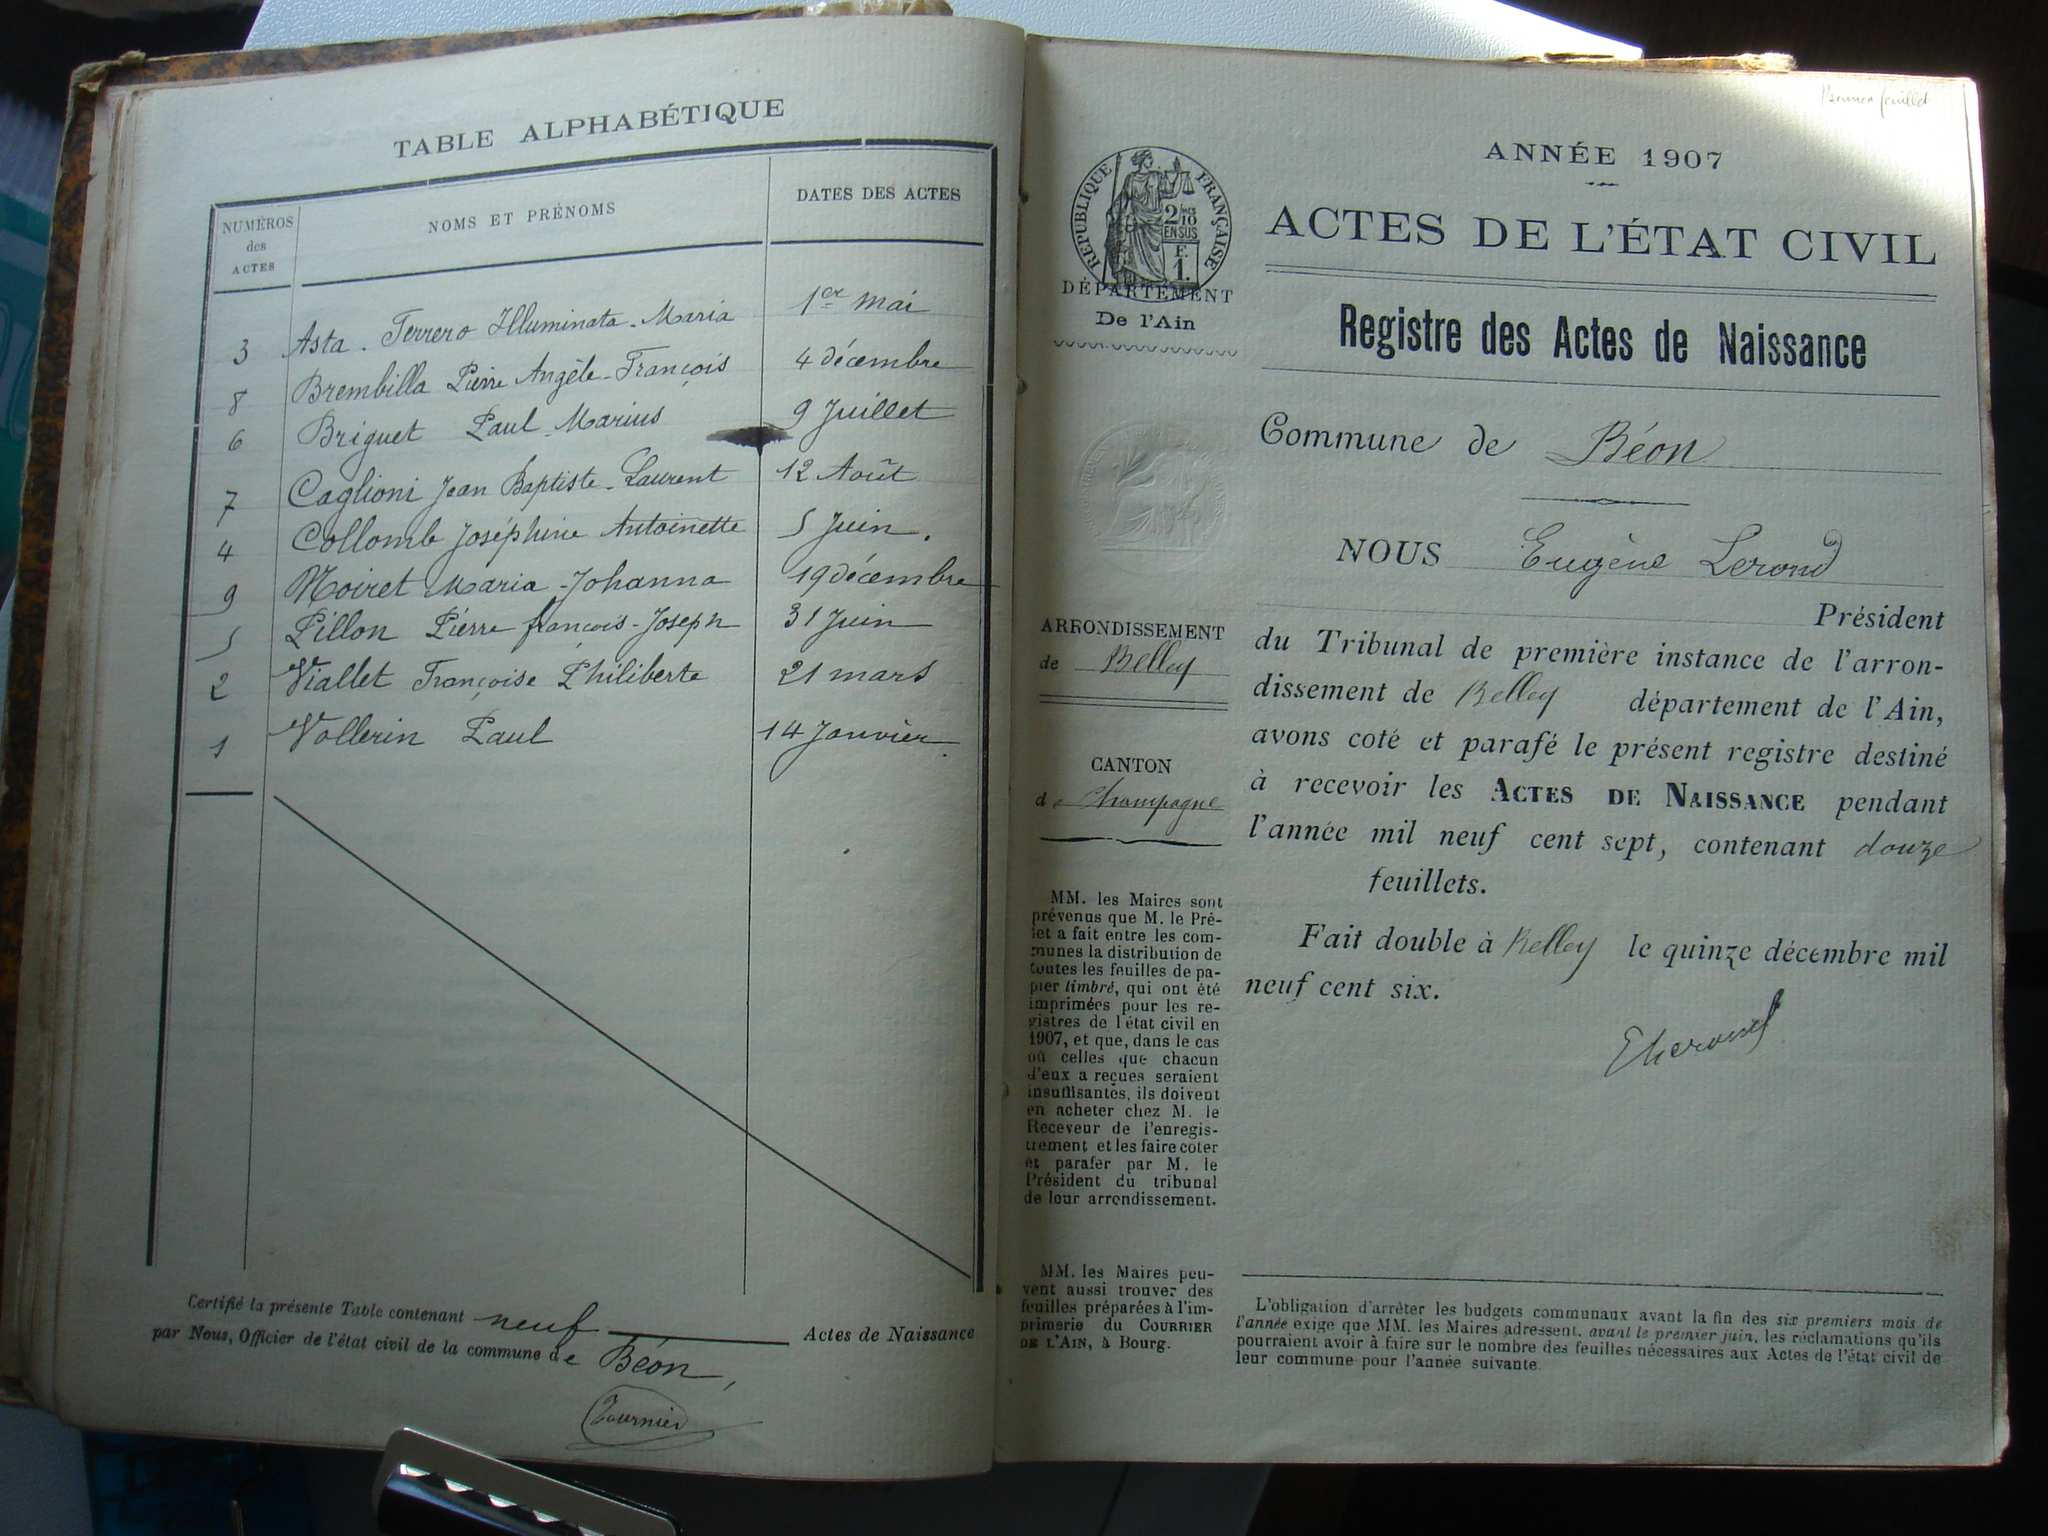 TABLE ALPHABÉTIQUE
NUMÉROS des ACTES NOMS ET PRÉNOMS DATES DES ACTES
3 Asta - Ferrero Illuminata-Maria 1er mai
8 Brembilla Pierre Angèle-François 4 décembre
6 Briguet Paul-Marius 9 Juillet
7 Caglioni Jean Baptiste-Laurent 12 Août
4 Collomb Joséphine Antoinette 5 Juin.
9 Moiret Maria-Johanna 19 décembre
5 Pillon Pierre françois-Joseph 31 Juin
2 Viallet Françoise Philiberte 21 mars
1 Vollerin Paul 14 Janvier
Certifié la présente Table contenant neuf Actes de Naissance
par Nous, Officier de l'état civil de la commune de Béon,
Tournier
Premier feuillet
ANNÉE 1907
RÉPUBLIQUE FRANÇAISE
2/10
EN SUS
F.
1.
ACTES DE L'ÉTAT CIVIL
DÉPARTEMENT
De l'Ain
Registre des Actes de Naissance
Commune de Béon
NOUS Eugène Lerond
Président
du Tribunal de première instance de l'arron-
dissement de Belley département de l'Ain,
avons coté et parafé le présent registre destiné
à recevoir les ACTES DE NAISSANCE pendant
l'année mil neuf cent sept, contenant douze
feuillets.
Fait double à Belley le quinze décembre mil
neuf cent six.
ARRONDISSEMENT
de Belley
CANTON
de Champagne
MM. les Maires sont
prévenus que M. le Pré-
fet a fait entre les com-
munes la distribution de
toutes les feuilles de pa-
pier timbré, qui ont été
imprimées pour les re-
gistres de l'état civil en
1907, et que, dans le cas
où celles que chacun
d'eux a reçues seraient
insuffisantes, ils doivent
en acheter chez M. le
Receveur de l'enregis-
trement et les faire coter
et parafer par M. le
Président du tribunal
de leur arrondissement.
MM. les Maires peu-
vent aussi trouver des
feuilles préparées à l'im-
primerie du COURRIER
DE L'AIN, à Bourg.
L'obligation d'arrêter les budgets communaux avant la fin des six premiers mois de
l'année exige que MM. les Maires adressent, avant le premier juin, les réclamations qu'ils
pourraient avoir à faire sur le nombre des feuilles nécessaires aux Actes de l'état civil de
leur commune pour l'année suivante.